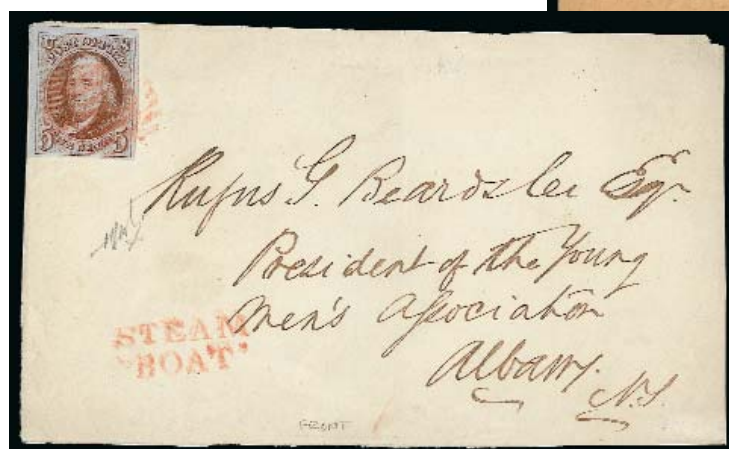 5 5
Rufus G. Beardslee Esqr.
President of the Young
Men's Association
Albany.
N.Y.
STEAM
BOAT
FRONT